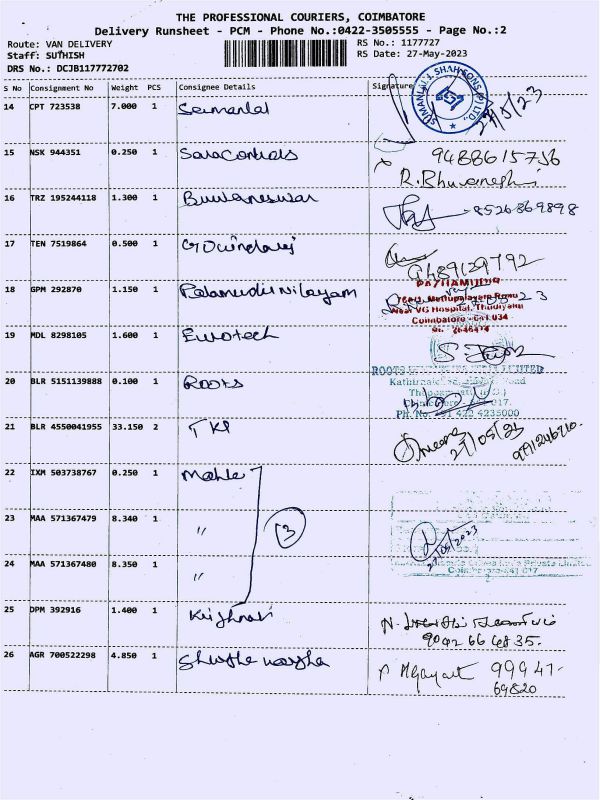 THE PROFESSIONAL COURIERS, COIMBATORE
Delivery Runsheet - PCM - Phone No.:0422-3505555 - Page No.:2
Route: VAN DELIVERY
Staff: SUTHISH
DRS No.: DCJB117772702
RS No.: 1177727
RS Date: 27-May-2023
S No Consignment No Weight PCS Consignee Details Signature
14 CPT 723538 7.000 1 27/5/23
15 NSK 944351 0.250 1 Sara Controls 9488615756
R. Bhuvanesh
16 TRZ 195244118 1.300 1 Buvaneswar 8526869898
17 TEN 7519864 0.500 1 Govindaraj 9489129792
18 GPM 292870 1.150 1 Palamudir nilayam
PAZHAMUDIR
Near VG Hospital, Thudiyalur
Coimbatore - 641 034
19 MDL 8298105 1.600 1 Eurotech
20 BLR 5151139888 0.100 1 Roots
ROOTS LIMITED
Road
Ph. No. +91 422 4235000
21 BLR 4550041955 33.150 2 TKP 27/05/23
22 IXM 503738767 0.250 1 Mahle
23 MAA 571367479 8.340 1 〃 3 27/05/2023
24 MAA 571367480 8.350 1 〃
Private Limited
Coimbatore-641 017
25 DPM 392916 1.400 1 Krishnan
9042664835.
26 AGR 700522298 4.850 1 99947-
69820